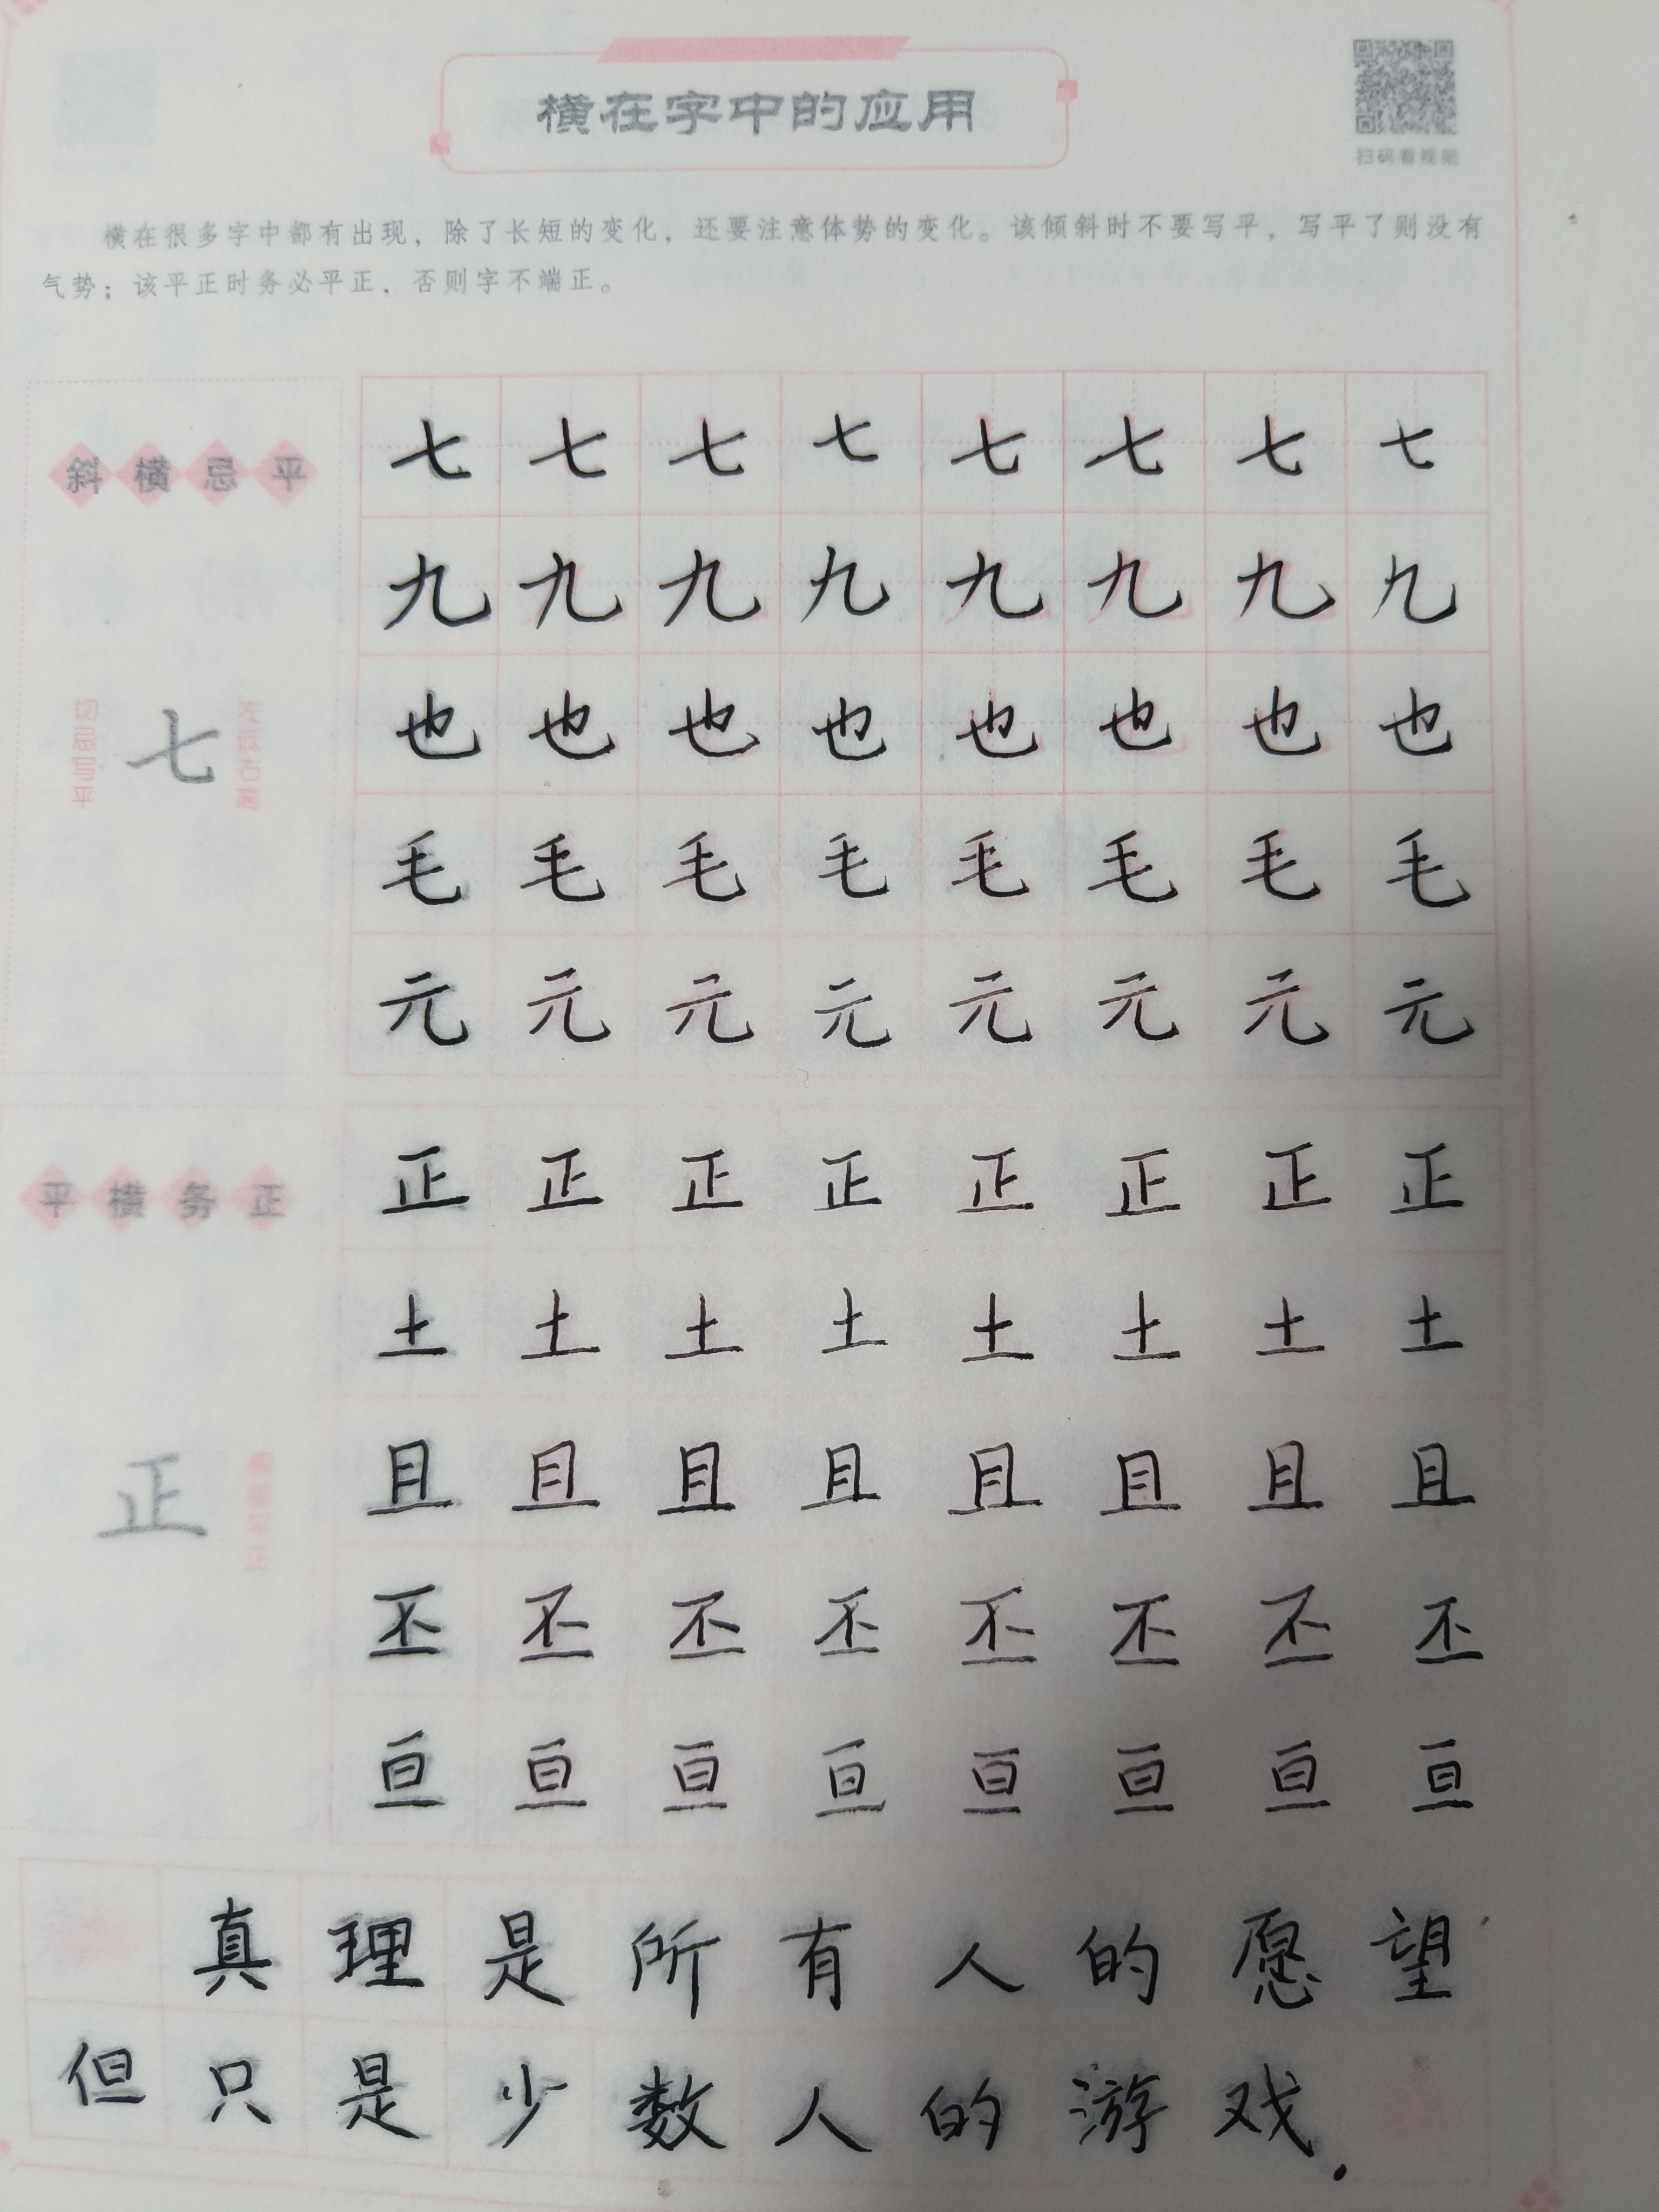 横在字中的应用
扫码看视频
横在很多字中都有出现，除了长短的变化，还要注意体势的变化。该倾斜时不要写平，写平了则没有
气势；该平正时务必平正，否则字不端正。
斜横忌平
左低右高
七
切忌写平
七七七七七七七七
九九九九九九九九
也也也也也也也也
毛毛毛毛毛毛毛毛
元元元元元元元元
平横务正
正
正正正正正正正正
土土土土土土土土
且且且且且且且且
丕丕丕丕丕丕丕丕
亘亘亘亘亘亘亘亘
真理是所有人的愿望
但只是少数人的游戏.